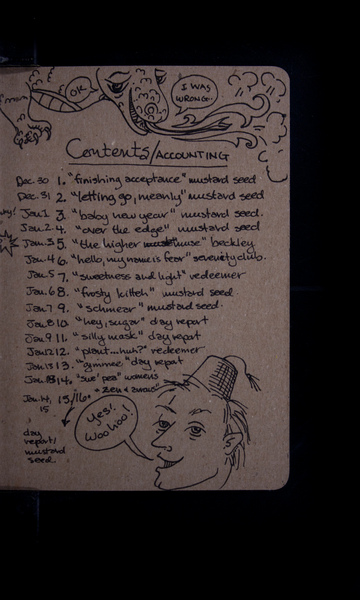 OK
I WAS
WRONG..
Contents/ACCOUNTING
Dec. 30 1. "finishing acceptance" mustard seed
Dec. 31 2. "letting go, meanly" mustard seed
Jan.1 3. "baby new year" mustard seed.
Jan.2 4. "over the edge" mustard seed
Jan.3 5. "the higher muse" beckley
Jan.4 6. "hello, my name is fear" serenity club.
Jan.5 7. "sweetness and light" redeemer
Jan.6 8. "frosty kitteh" mustard seed
Jan.7 9. "schmear" mustard seed.
Jan.8 10. "hey, sugar" day report
Jan.9 11. "silly mask" day report
Jan.12 12. "plant...huh?" redeemer
Jan.13 13. "gimmee" day report
14. "sue' pea" womens
Jan.14, 15/16. "zen &
15
day
report/
mustard
seed..
Yes!!
Woo Hoo!